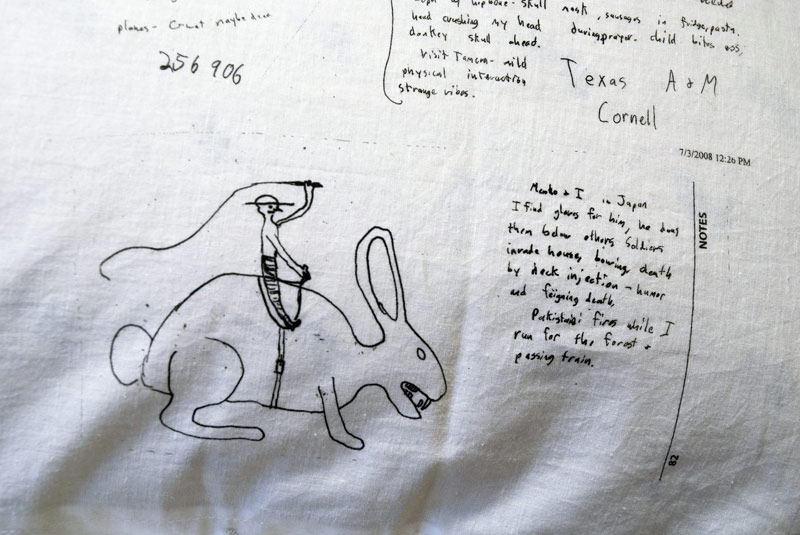 planes -
256 906
skull mask, sausages in fridge, pasta.
head crushing my head during prayer. child bites ass,
donkey skull ahead.
Visit Tamera - mild
physical interaction
strange vibes.
Texas A & M
Cornell
7/3/2008 12:26 PM
& I in Japan
I find gloves for him, he dons
them below others. Soldiers
invade house, bowing, death
by deck injection - humor
and feigning death.
Pakistani fires while I
run for the forest &
passing train.
NOTES
82